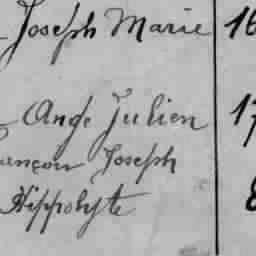 Joseph Marie 16
Ange Julien 17
Joseph
Hippolyte